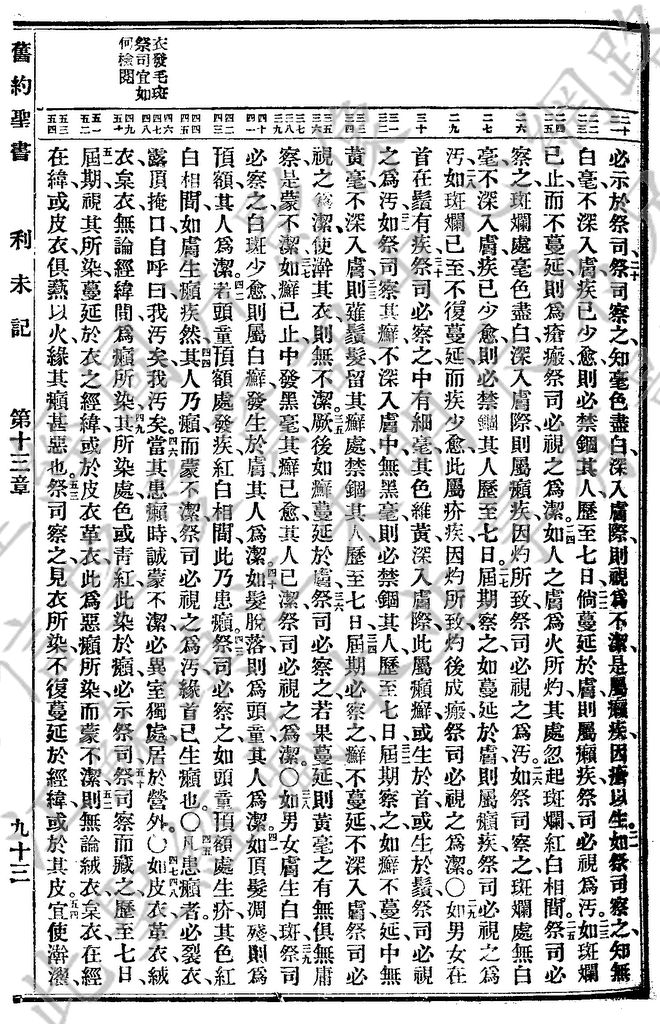 必示於祭司祭司察之知毫色盡白深入膚際則視爲不潔是屬癩疾因瘡以生如祭司察之知無
白毫不深入膚疾已少愈則必禁錮其人歷至七日倘蔓延於膚則屬癩疾祭司必視爲汚如斑斕
已止而不蔓延則爲瘡瘢祭司必視之爲潔如人之膚爲火所灼其處忽起斑斕紅白相間祭司必
察之斑斕處毫色盡白深入膚際則屬癩疾因灼所致祭司必視之爲汚如祭司察之斑斕處無白
毫不深入膚疾已少愈則必禁錮其人歷至七日屆期察之如蔓延於膚則屬癩疾祭司必視之爲
汚如斑斕已止不復蔓延而疾少愈此屬疥疾因灼所致灼後成瘢祭司必視之爲潔〇如男女在
首在鬚有疾祭司必察之中有細毫其色維黃深入膚際此屬癩癬或生於首或生於鬚祭司必視
之爲汚如祭司察其癬不深入膚中無黑毫則必禁錮其人歷至七日屆期察之如癬不蔓延中無
黃毫不深入膚則薙鬚髮留其癬處禁錮其人歷至七日屆期必察之癬不蔓延不深入膚祭司必
視之爲潔使澣其衣則無不潔厥後如癬蔓延於膚祭司必察之若果蔓延則黃毫之有無俱無庸
察是蒙不潔如癬已止中發黑毫其癬已愈其人已潔祭司必視之爲潔〇如男女膚生白斑祭司
必察之白斑少愈則屬白癬發生於膚其人爲潔如髮脫落則爲頭童其人爲潔如頂髮凋殘則爲
頂額其人爲潔若頭童頂額處發疾紅白相間此乃患癩祭司必察之如頭童頂額處生疥其色紅
白相間如膚生癩疾然其人乃癩而蒙不潔祭司必視之爲汚緣首已生癩也〇凡患癩者必裂衣
露頂掩口自呼曰我汚矣我汚矣當其患癩時誠蒙不潔必異室獨處居於營外〇如皮衣革衣絨
衣枲衣無論經緯間爲癩所染其所染處色或青紅此染於癩必示祭司祭司察而藏之歷至七日
屆期視其所染蔓延於衣之經緯或於皮衣革衣此爲惡癩所染而蒙不潔則無論絨衣枲衣在經
在緯或皮衣俱爇以火緣其癩甚惡也祭司察之見衣所染不復蔓延於經緯或於其皮宜使澣濯
衣發毛斑
祭司宜如
何檢閱
舊約聖書
利未記
第十三章
九十三